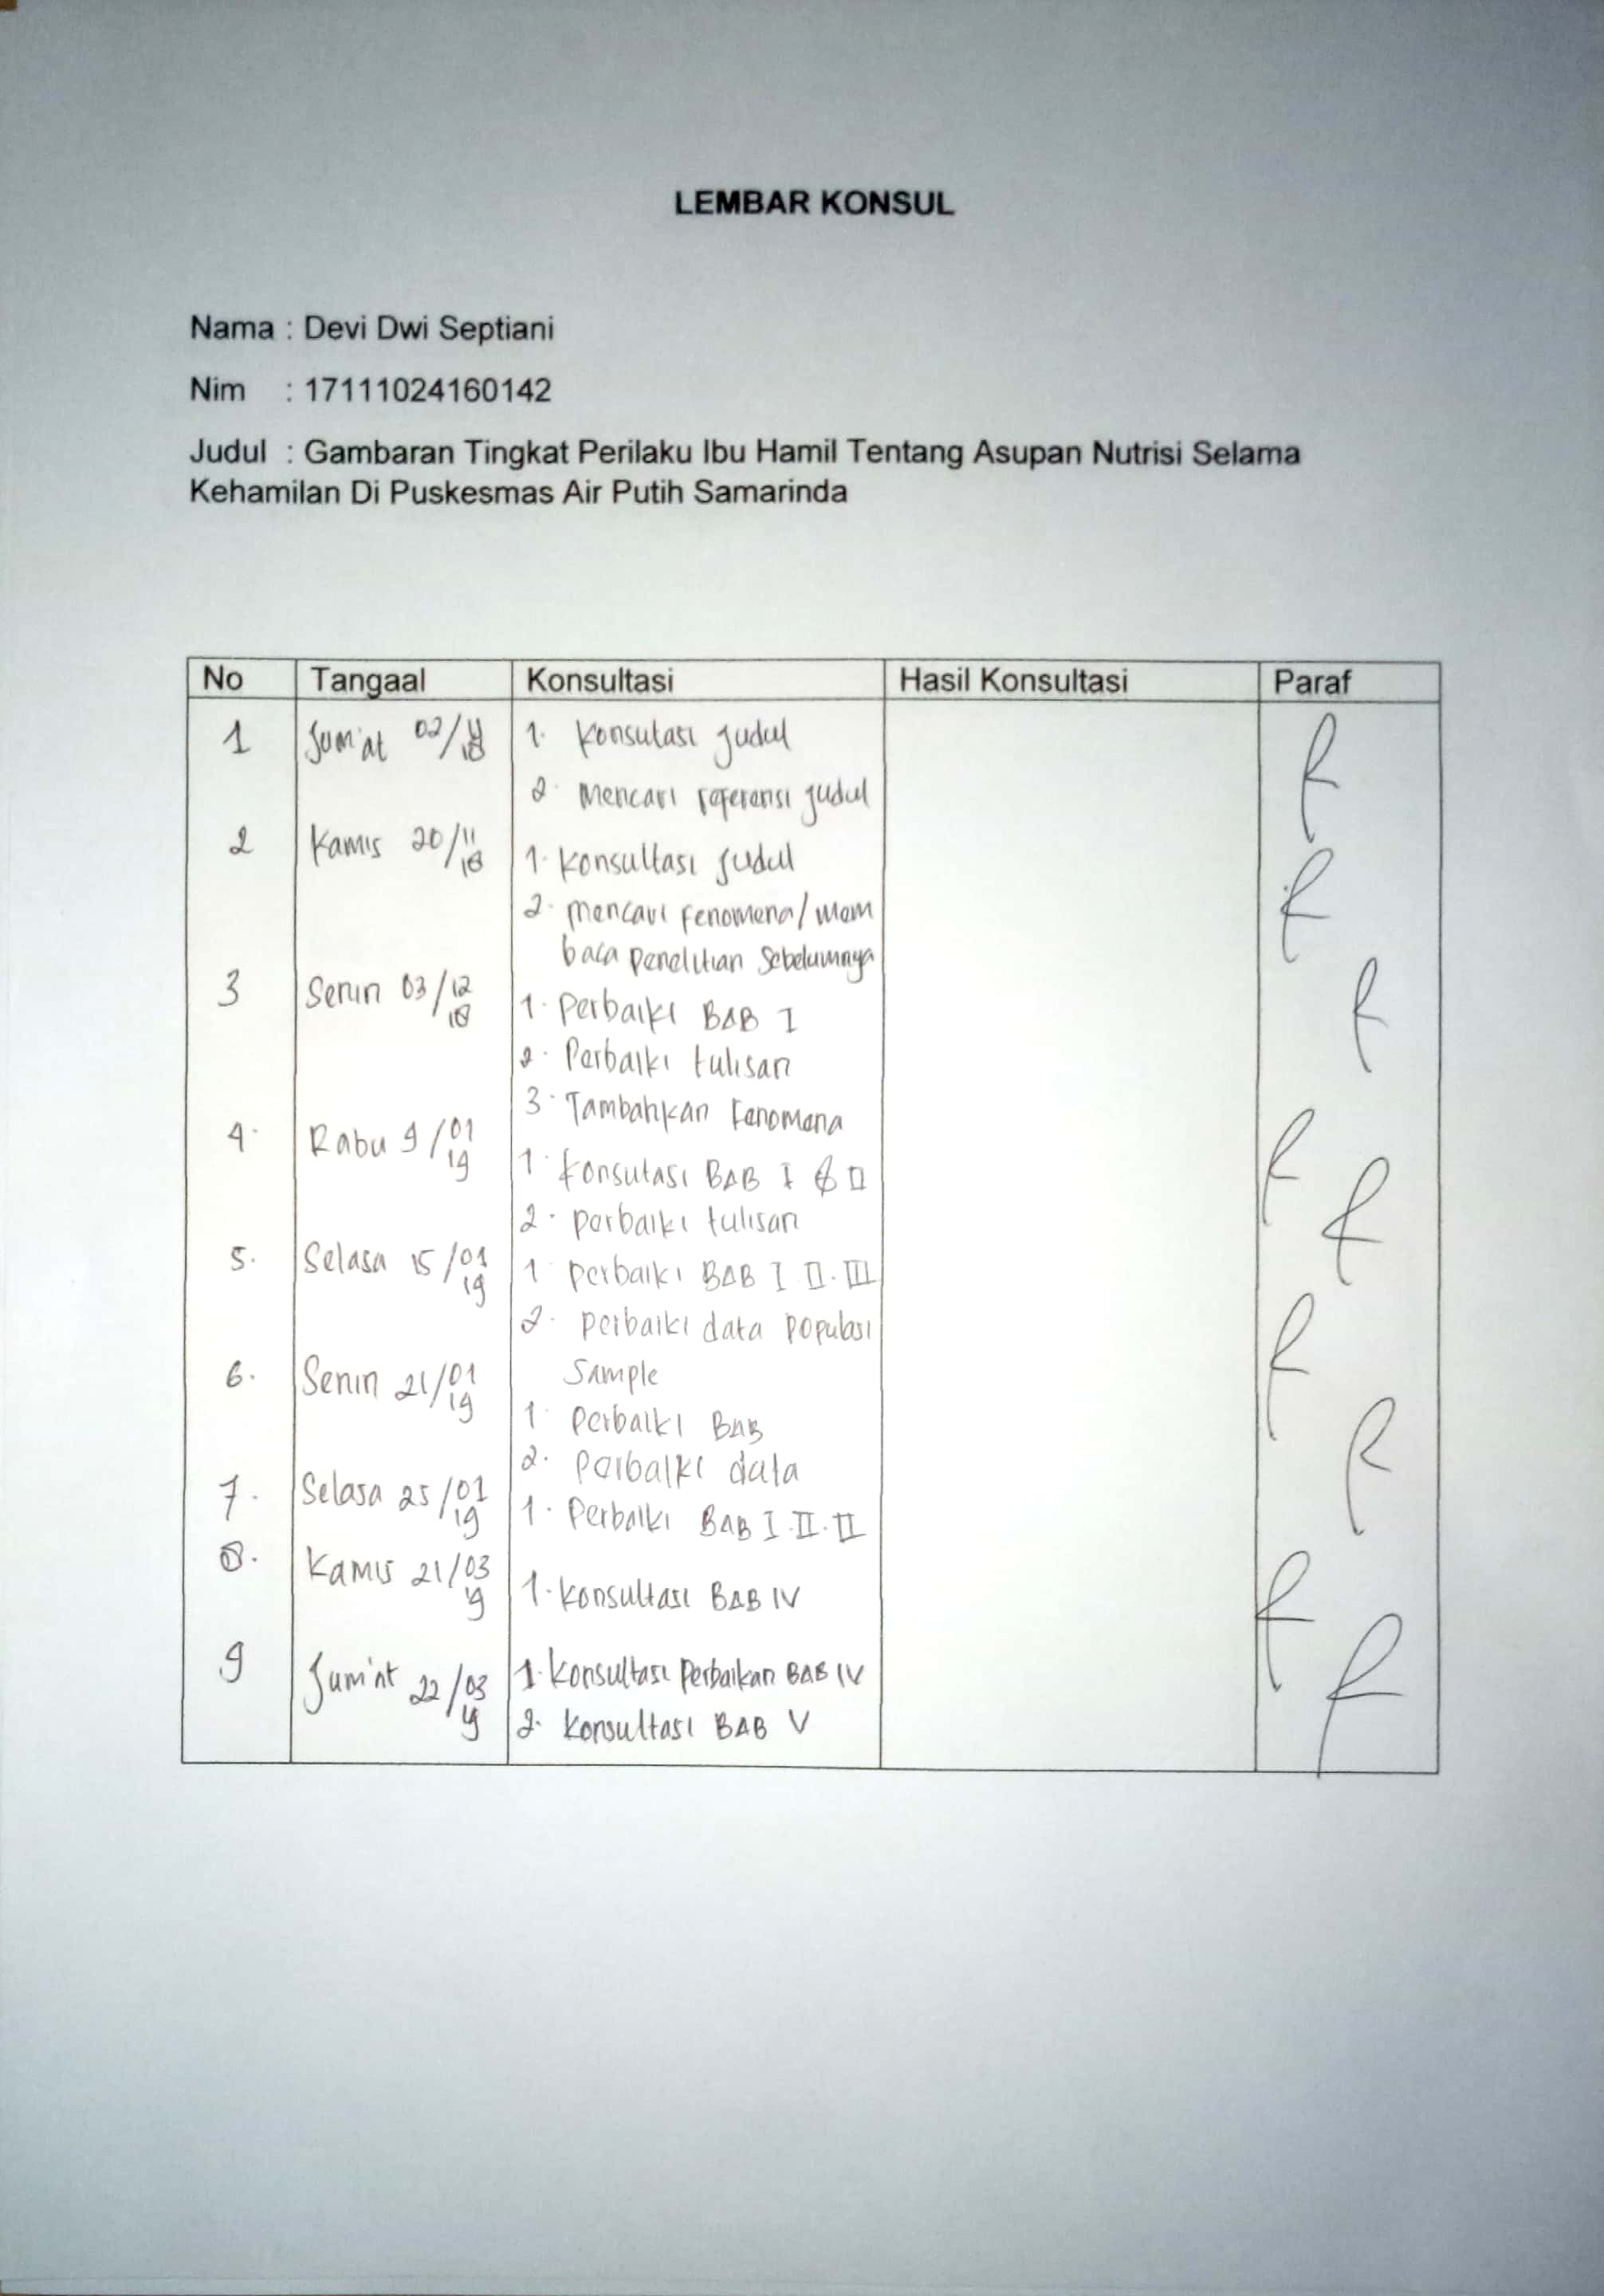 LEMBAR KONSUL
Nama : Devi Dwi Septiani
Nim : 17111024160142
Judul : Gambaran Tingkat Perilaku Ibu Hamil Tentang Asupan Nutrisi Selama
Kehamilan Di Puskesmas Air Putih Samarinda
No Tangaal Konsultasi Hasil Konsultasi Paraf
1 Jum'at 02/11/18 1. Konsutasi judul
2. Mencari referensi judul
2 Kamis 20/11/18 1. Konsultasi judul
2. mencari fenomena/mem
baca penelitian sebelumnya
3 Senin 03/12/18 1. Perbaiki BAB I
2. Perbaiki tulisan
3. Tambahkan fenomena
4. Rabu 9/01/19 1. Konsutasi BAB I & II
2. perbaiki tulisan
5. Selasa 15/01/19 1. perbaiki BAB I II. III
2. perbaiki data populasi
Sample
6. Senin 21/01/19 1. Perbaiki BAB
2. perbaiki data
7. Selasa 25/01/19 1. Perbaiki BAB I. II. II
8. Kamis 21/03/19 1. Konsultasi BAB IV
9 Jum'at 22/03/19 1. Konsultasi Perbaikan BAB IV
2. Konsultasi BAB V